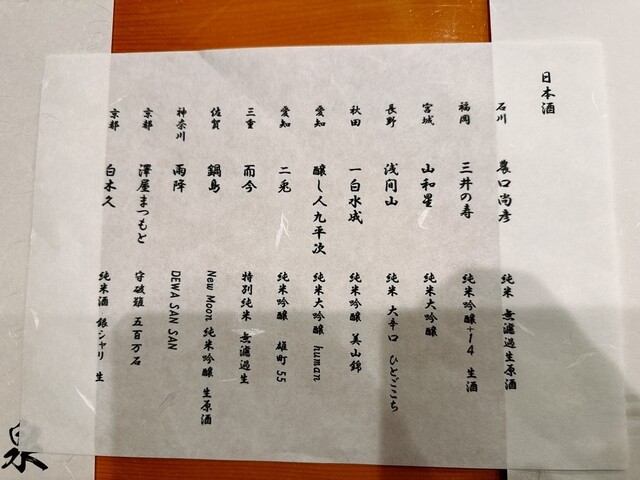 日本酒
石川 農口尚彦 純米 無濾過生原酒
福岡 三井の寿 純米吟醸+14 生酒
宮城 山和星 純米大吟醸
長野 浅間山 純米 大辛口 ひとごこち
秋田 一白水成 純米吟醸 美山錦
愛知 醸し人九平次 純米大吟醸 human
愛知 二兎 純米吟醸 雄町55
三重 而今 特別純米 無濾過生
佐賀 鍋島 New Moon 純米吟醸 生原酒
神奈川 雨降 DEWA SAN SAN
京都 澤屋まつもと 守破離 五百万石
京都 白木久 純米酒 銀シャリ 生